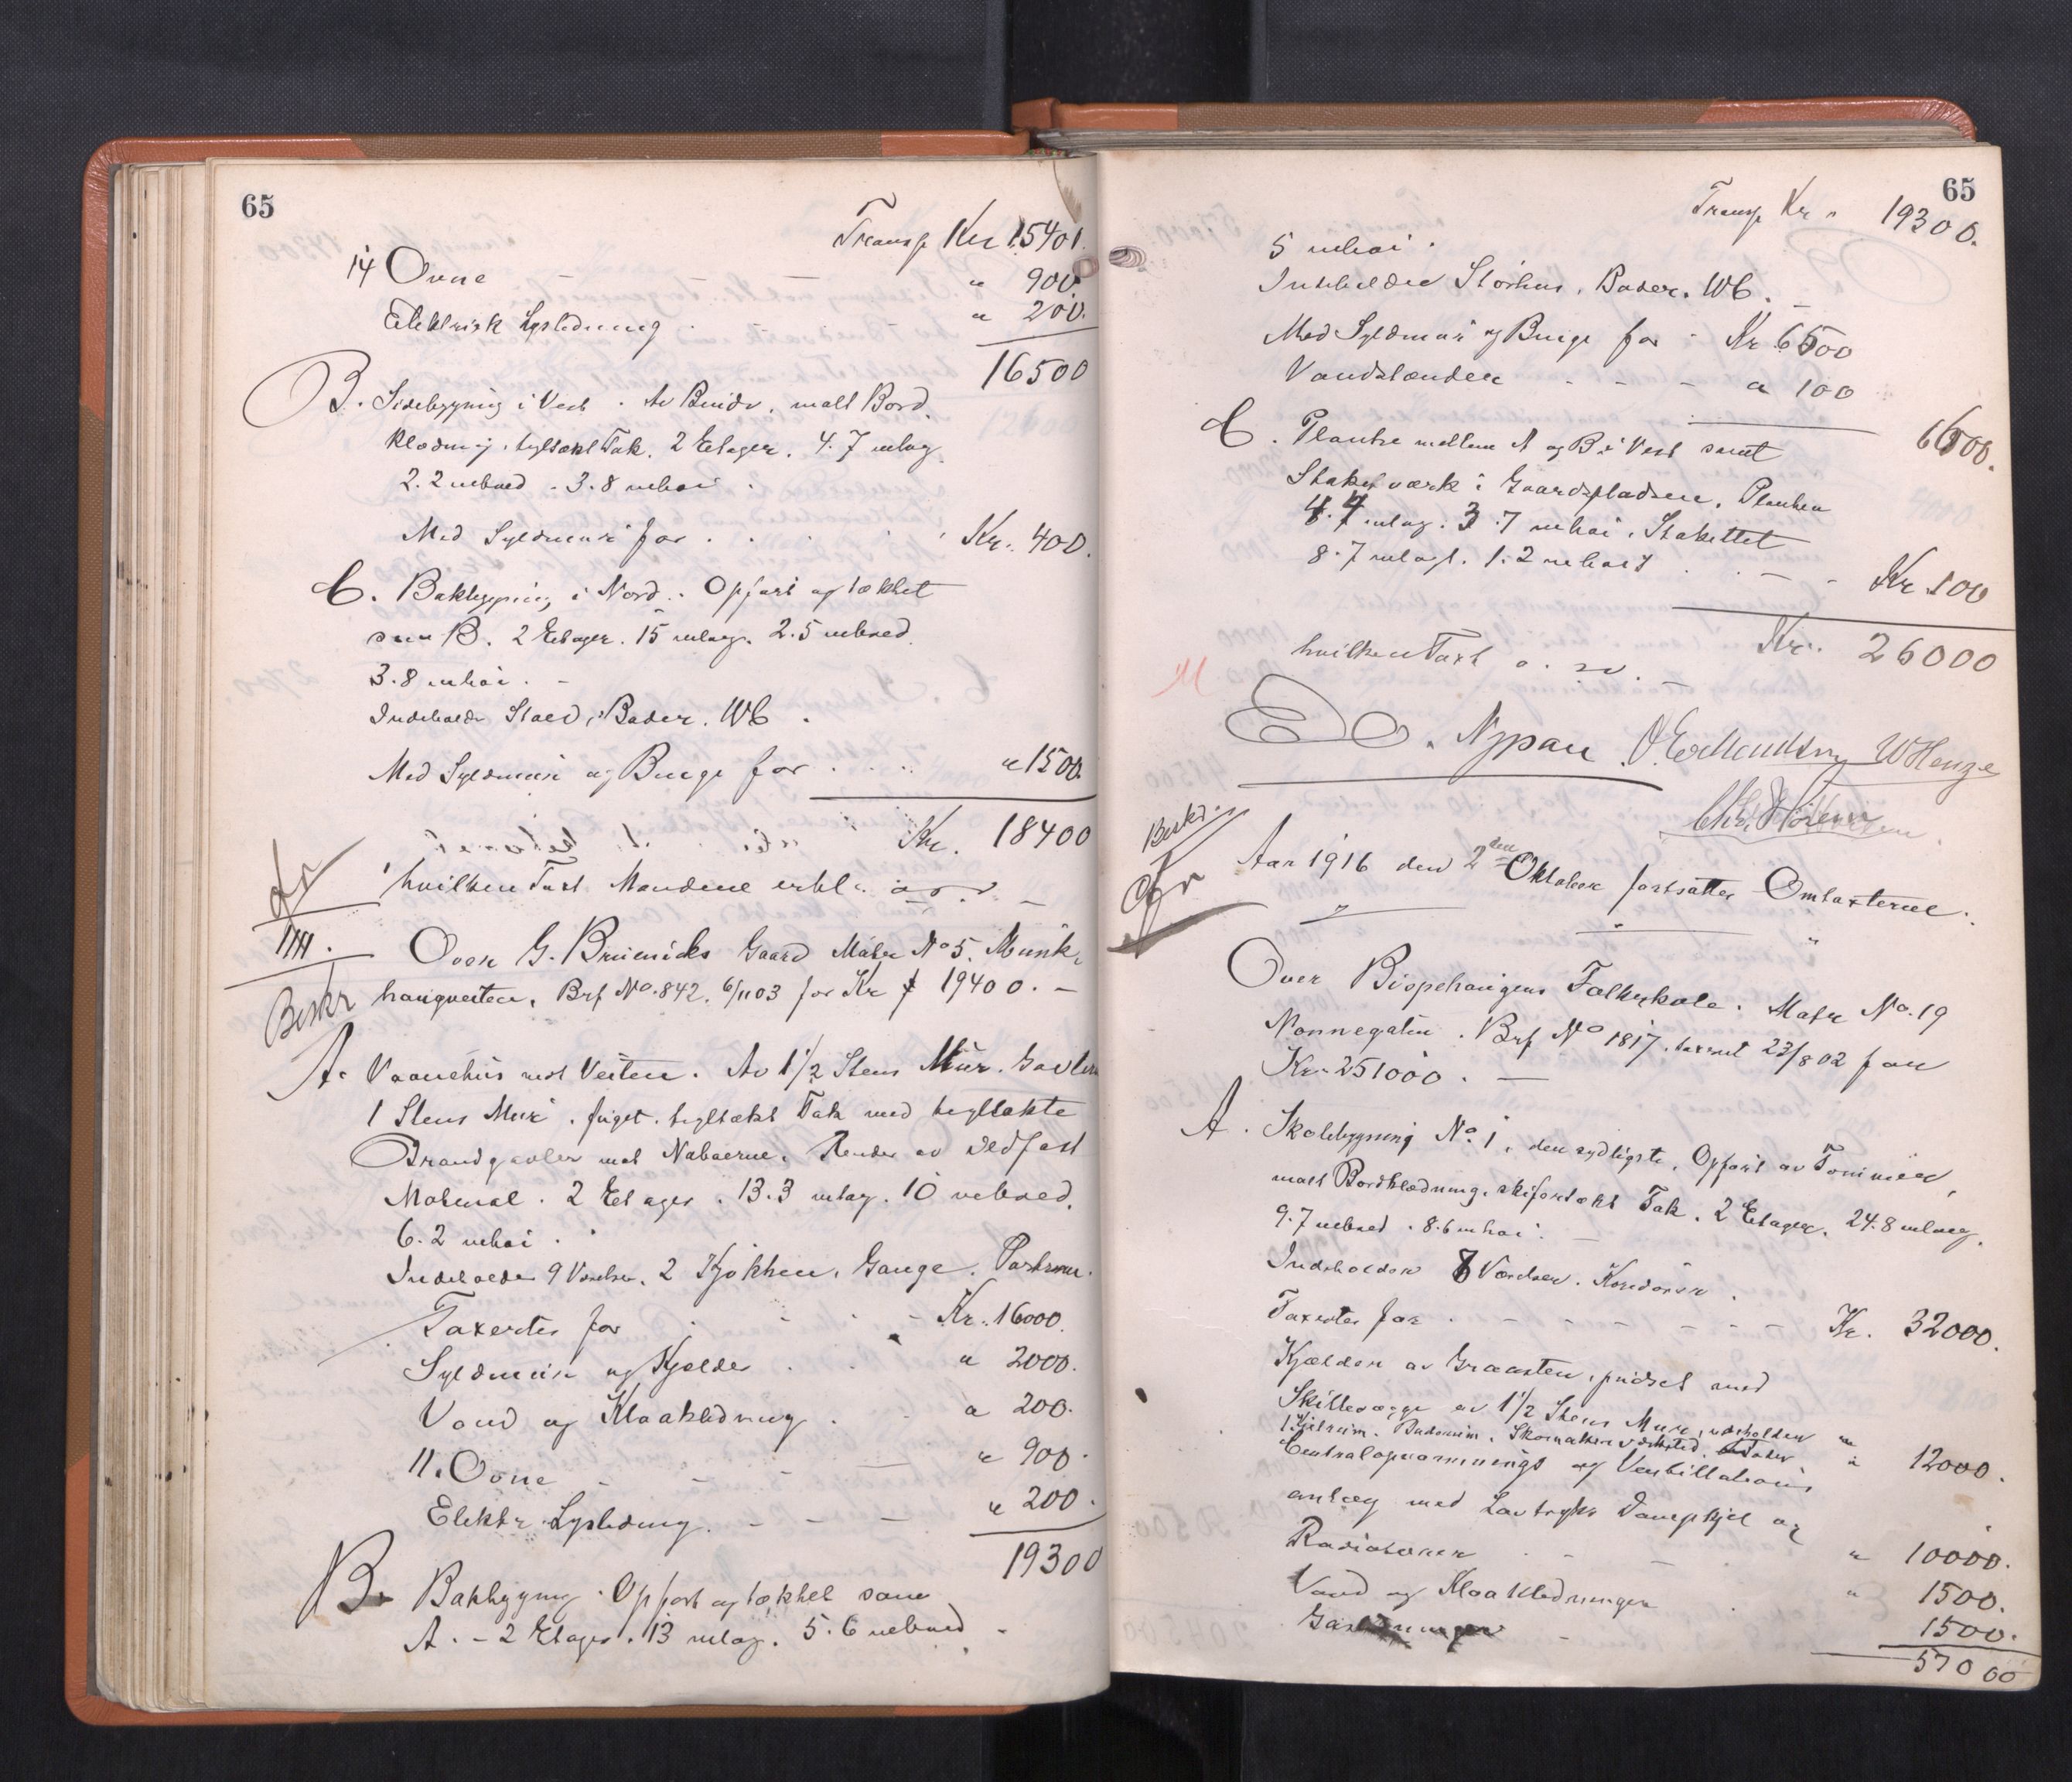 65
Transp Kr 15401.
14 Ovne - - - " 900
Elektrisk Lysledning . - " 200.
16500
B. Sidebygning i Vest . Av Bindv. malt Bord.
klædning, tegltækt Tak. 2 Etager. 4.7 m lag
2.2 m bred . 3.8 m høi .
Med Syldmur for . . . . Kr. 400.
C. Bakbygning i Nord . Opført og tækket
som B. 2 Etager. 15 m lang. 2.5 m bred.
3.8 m høi. -
Indeholder Stald, Boder. WC .
Med Syldmur og Burge for . . . " 1500.
Kr. 18400
hvilken Taxt Mændene erkl. o.s.v. -
Over G. Bruemicks Gaard Matr No 5. Munk-
haugveiten, Brf No. 842. 6/11 03 for Kr 19400. -
Beskr
A. Vaanehus mot Veiten. Av 1 1/2 Stens Mur. Gavlen
1 Stens Mur . fuget . tegltækt Tak med tegltækte
Brandgavler mot Naboerne. Render av ildfast
Material . 2 Etager . 13.3 m lag. 10 m bred.
6.2 m høi .
Indeholder 9 Værelser, 2 Kjøkken, Gange.
Taxertes for . - . - Kr. 16000.
Syldmur og Kjelder . . " 2000.
Vand og Kloakledning . . " 200.
11. Ovne - - - - " 900.
Elektr. Lysledning. - - - " 200.
19300
B. Bakbygning . Opført og tækket som
A. - 2 Etager . 13 m lag. 5.6 m bred -
65
Transp Kr " 19300.
5 m høi .
Indeholder Störhus, Boder. WC. -
Med Syldmur og Burge for - Kr 6500
Vandstænder - - - " 100
6600.
C. Planke mellem A og B i Vest samt
Staketværk i Gaardspladsen. Planken
4.4 m lag. 3.7 m høi. Stakettet
8.7 m lagt. 1.2 m høit . . - - Kr 100
Kr. 26000
hvilken Taxt o. sv.
M
O. Nypan O. Erlandsen W Henze
Beskr.
Aar 1916 den 2den Oktober fortsattes Omtaxterne.
Over Bispehaugens Folkeskole. Matr No. 19
Nonnegaten . Brf No 1817. taxert 23/8 02 for
Kr. 251000 . -
A. Skolebygning No. 1, den sydligste, Opført av Tømmer,
malt Bordklædning, skifertækt Tak. 2 Etager. 24.8 m lag,
9.7 m bred . 8.6 m høi . -
Indeholder 8 Værelser. Koridorer .
Taxertes for . - - - - - - Kr. 32000.
Kjelder av Graasten, pudset med
Skillevægge av 1 1/2 Stens Mur, indeholder
1 Fyrrum. Baderum. Skomakerværksted. Boder " 12000.
Centralopvarmnings og Ventillations
anlæg med Lavtryks Dampkjel og
Radiatorer . - - " 10000.
Vand og Kloakledninger . " 1500.
Gasledninger - 1500.
57000